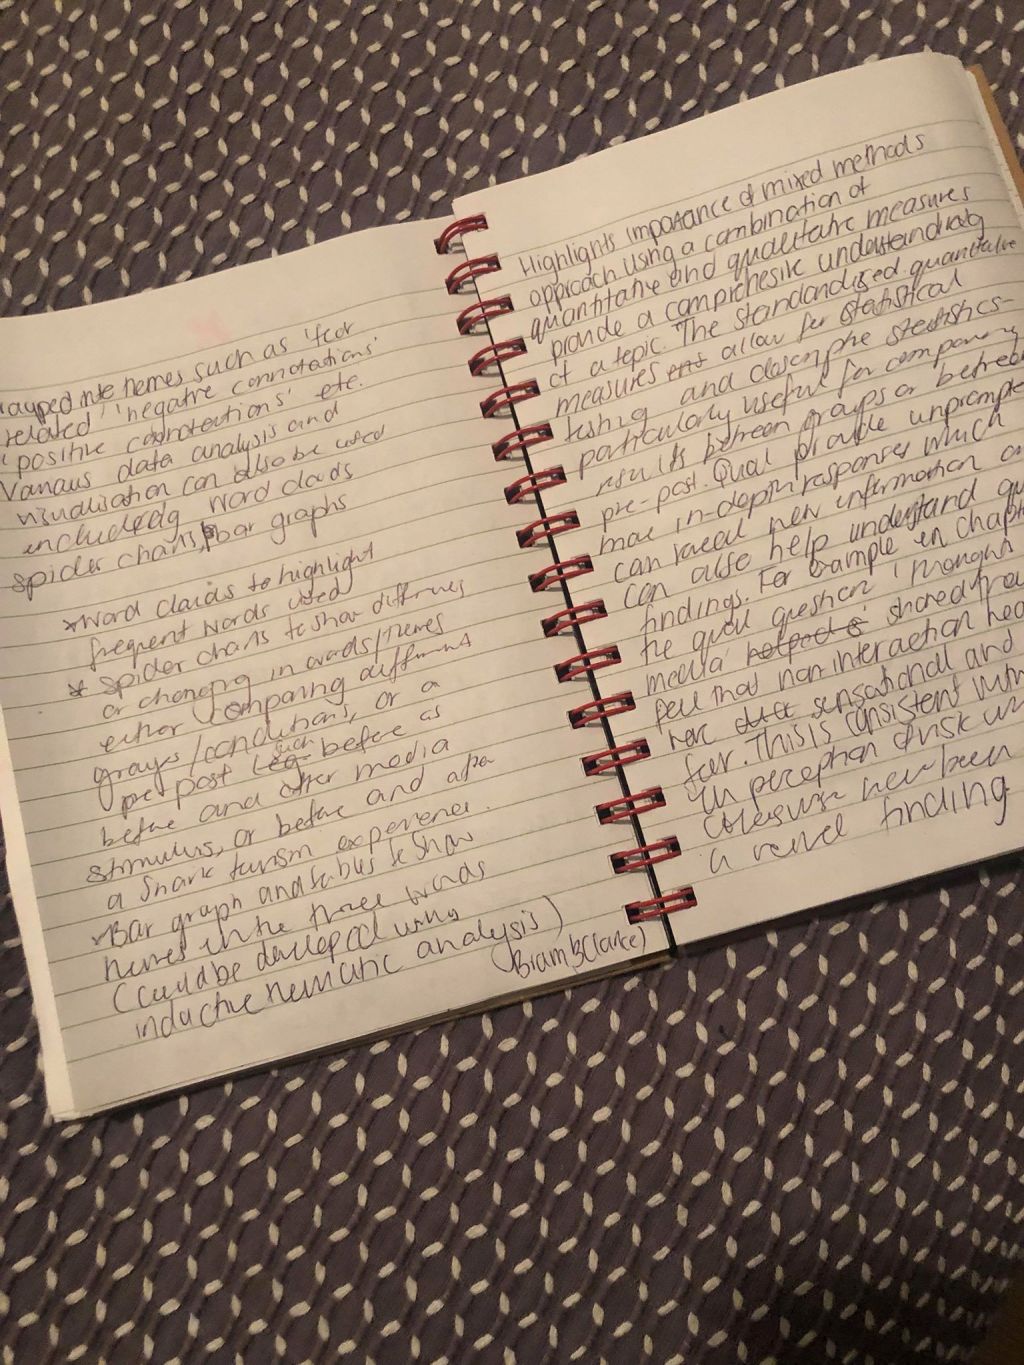 into themes such as 'fear
related' 'negative connotations'
'positive connotations' etc.
Various data analysis and
visualisation can also be used
including word clouds
spider charts, bar graphs
*Word clouds to highlight
frequent words used
* Spider charts to show differences
or changing in words/themes
either comparing different
groups/conditions, or a
pre post such before as
before and after media
stimulus, or before and after
a shark tourism experience.
Bar graph and to show
themes in the three words
(could be developed using
inductive thematic analysis)
Highlights importance of mixed methods
approach using a combination of
quantitative and qualitative measures
provide a comprehesive understanding
of a topic. The standardised quantitative
measures allow for statistical
testing and descriptive statistics -
particularly useful for comparing
results between groups or between
pre-post. Qual provide unprompted
more in-depth responses which
can reveal new information and
can also help understand
findings. For example in
the qual question 'thoughts
media' shared
feel that non interaction
sensational and
fear. This is consistent with
in perception of risk
otherwise have been
a novel finding